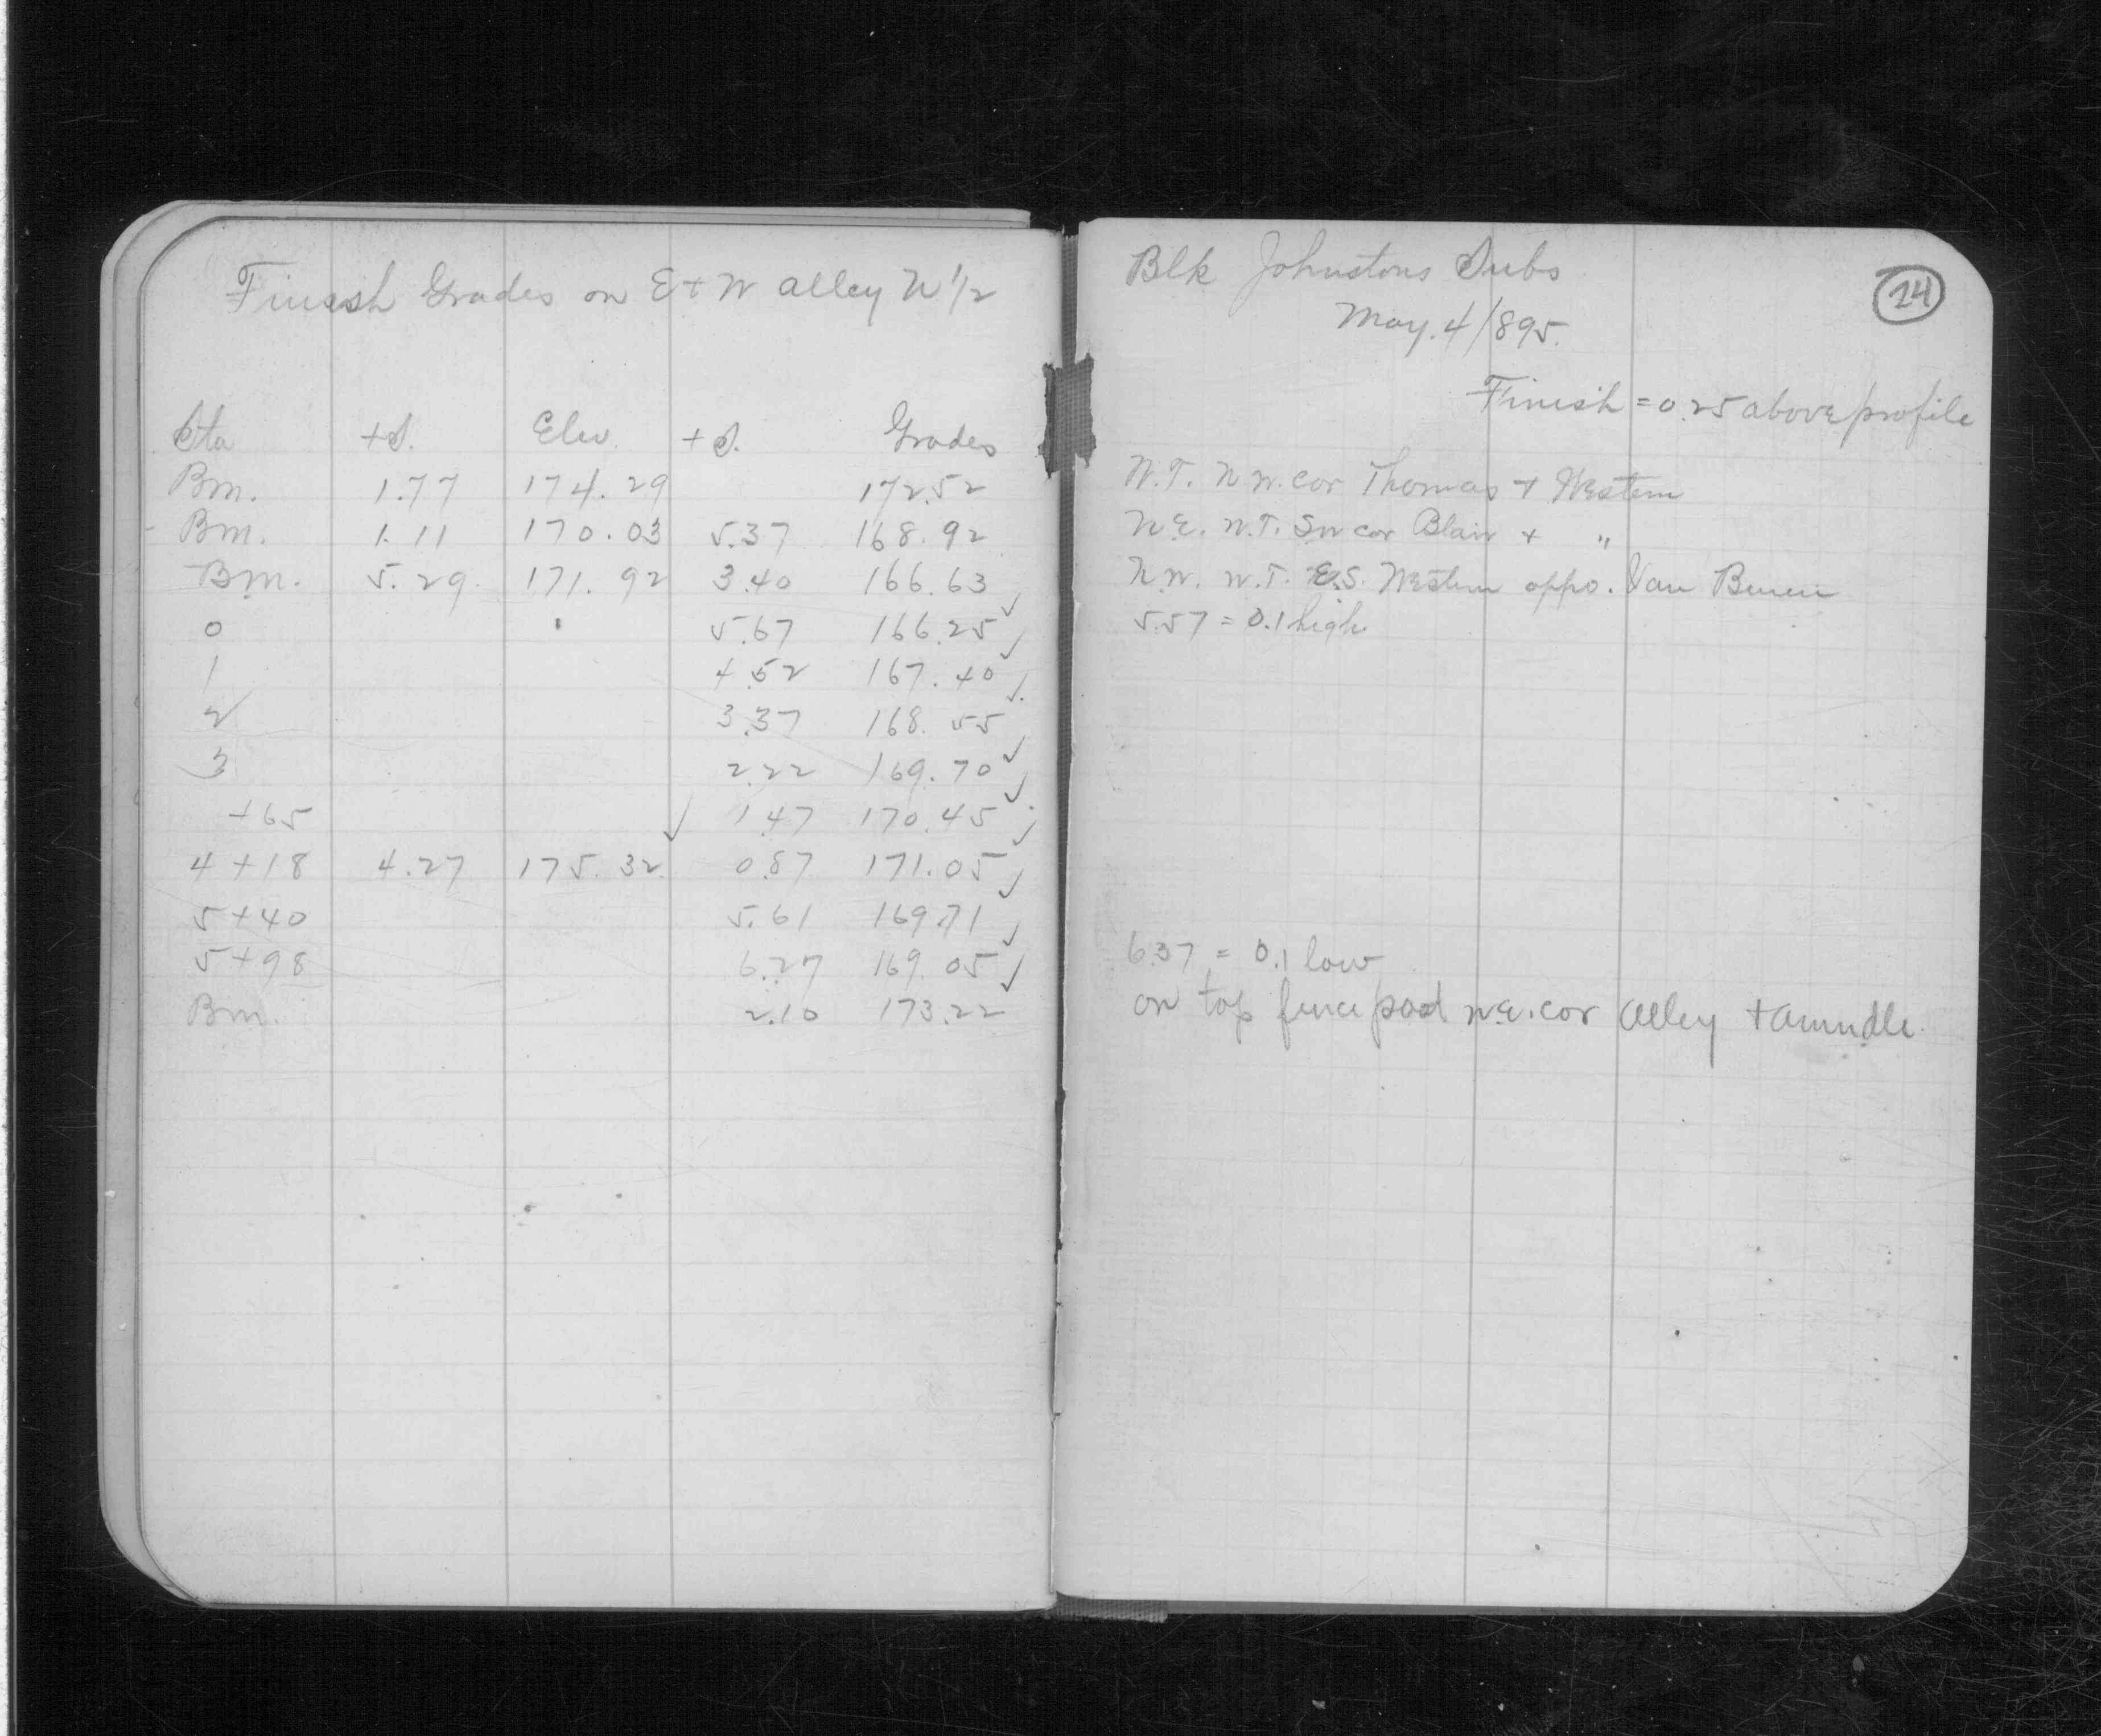 Finish Grades on E + W alley N 1/2
Sta +S. Elev. +S. Grades
Bm. 1.77 174.29 172.52
Bm. 1.11 170.03 5.37 168.92
Bm. 5.29 171.92 3.40 166.63
0 5.67 166.25 ✓
1 4.52 167.40 ✓
2 3.37 168.55 ✓
3 2.22 169.70 ✓
+65 1.47 170.45 ✓
4+18 4.27 175.32 ✓ 0.87 171.05 ✓
5+40 5.61 169.71 ✓
5+98 6.27 169.05 ✓
Bm. 2.10 173.22
Blk Johnstons Subs
24
May. 4/895.
Finish = 0.25 above profile
W.T. N W. cor Thomas + Western
N.E. W.T. SW cor Blair + "
N.W. W.T. E.S. Western oppo. Van Buren
5.57 = 0.1 high
6.37 = 0.1 low
on top fence post N.E. cor alley + Arundle.